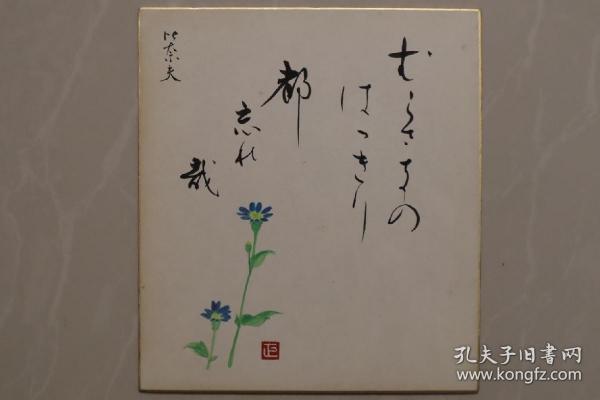 むらさきの
はつきり
都
忘れ
哉
比奈夫
孔夫子旧書网
www.kongfz.com